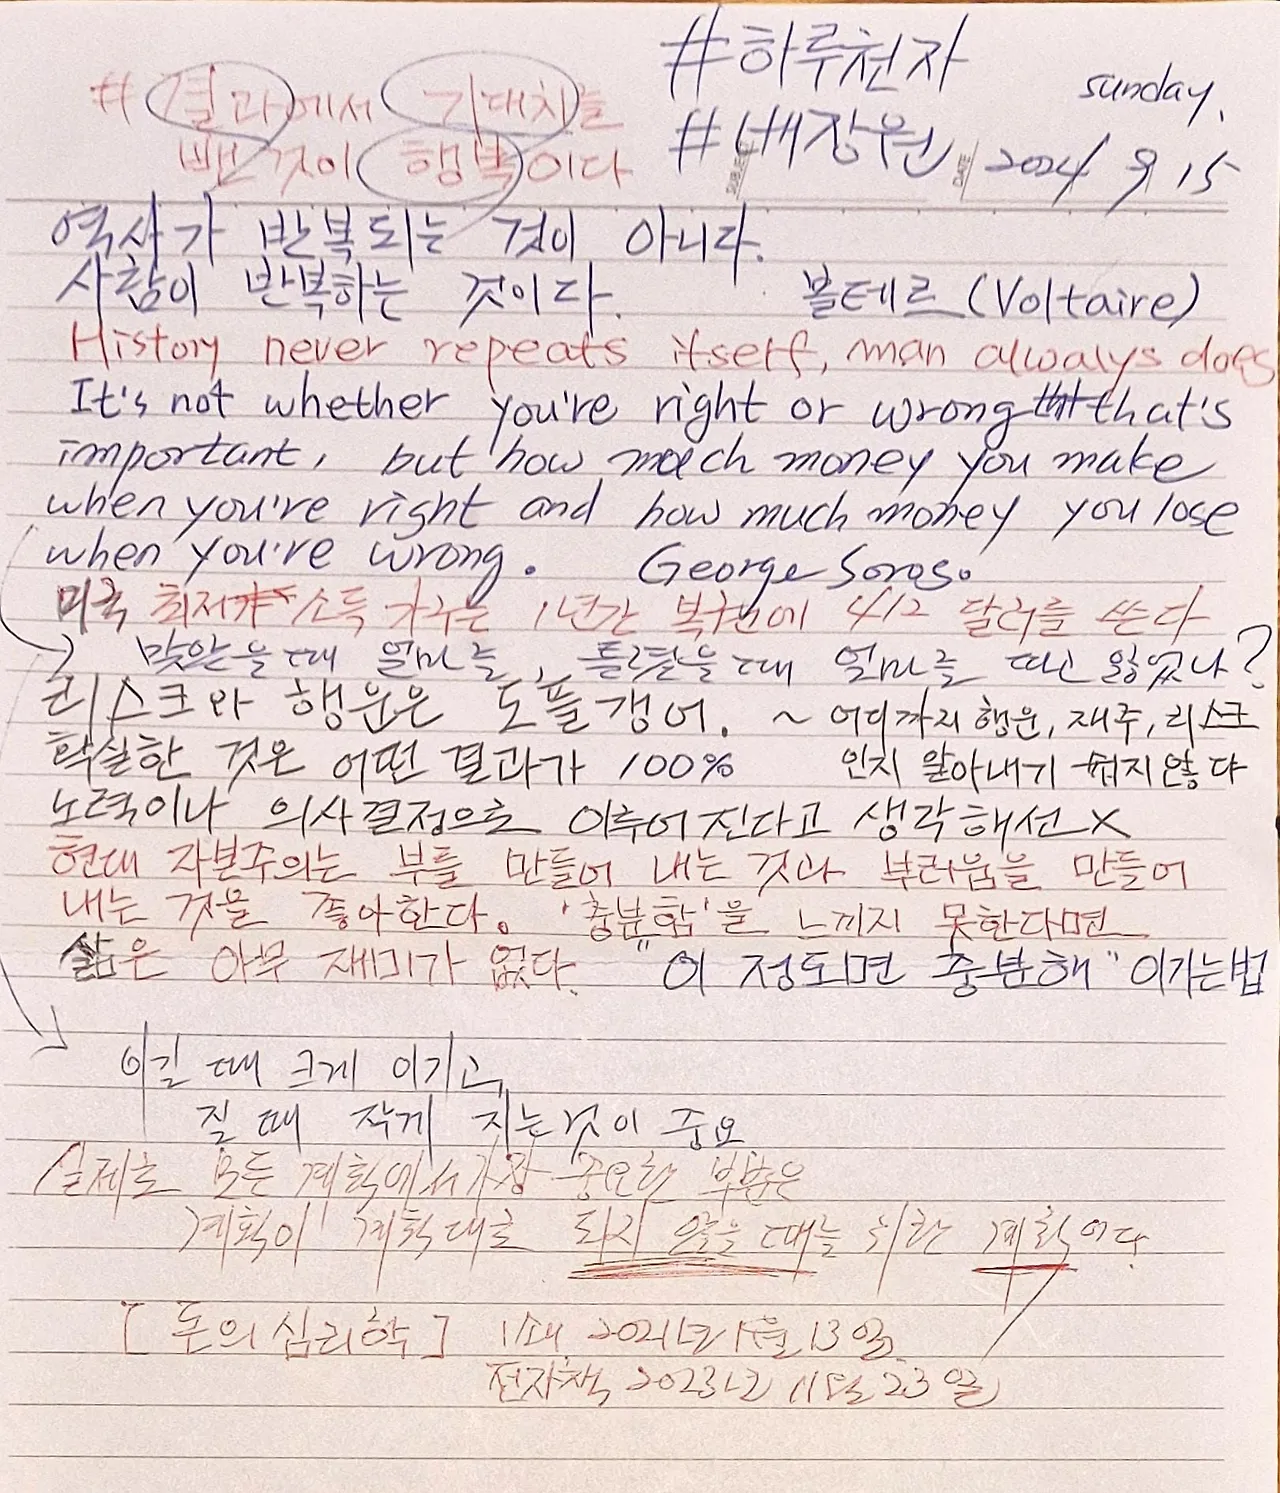 #하루천자
sunday.
# 결과에서 기대치를
#배장원
SUBJECT
DATE
2024 9 15
뺀 것이 행복이다
역사가 반복되는 것이 아니다.
사람이 반복하는 것이다. 볼테르 (Voltaire)
History never repeats itself, man always does
It's not whether you're right or wrong that's
important, but how much money you make
when you're right and how much money you lose
when you're wrong. George Soros.
미국 최저 소득 가구는 1년간 복권에 412 달러를 쓴다
맞았을 때 얼마를, 틀렸을 때 얼마를 따고 잃었나?
리스크와 행운은 도플갱어. ~ 어디까지 행운, 재주, 리스크
확실한 것은 어떤 결과가 100% 인지 알아내기 쉽지 않다
노력이나 의사결정으로 이루어진다고 생각해선 X
현대 자본주의는 부를 만들어 내는 것과 부러움을 만들어
내는 것을 좋아한다. '충분함'을 느끼지 못한다면
삶은 아무 재미가 없다. "이 정도면 충분해" 이기는 법
이길 때 크게 이기고,
질 때 작게 지는것이 중요
실제로 모든 계획에서 가장 중요한 부분은
계획이 계획대로 되지 않을 때를 위한 계획이다.
[돈의 심리학] 1쇄 2021년 1월 13일.
전자책 2023년 11월 23일